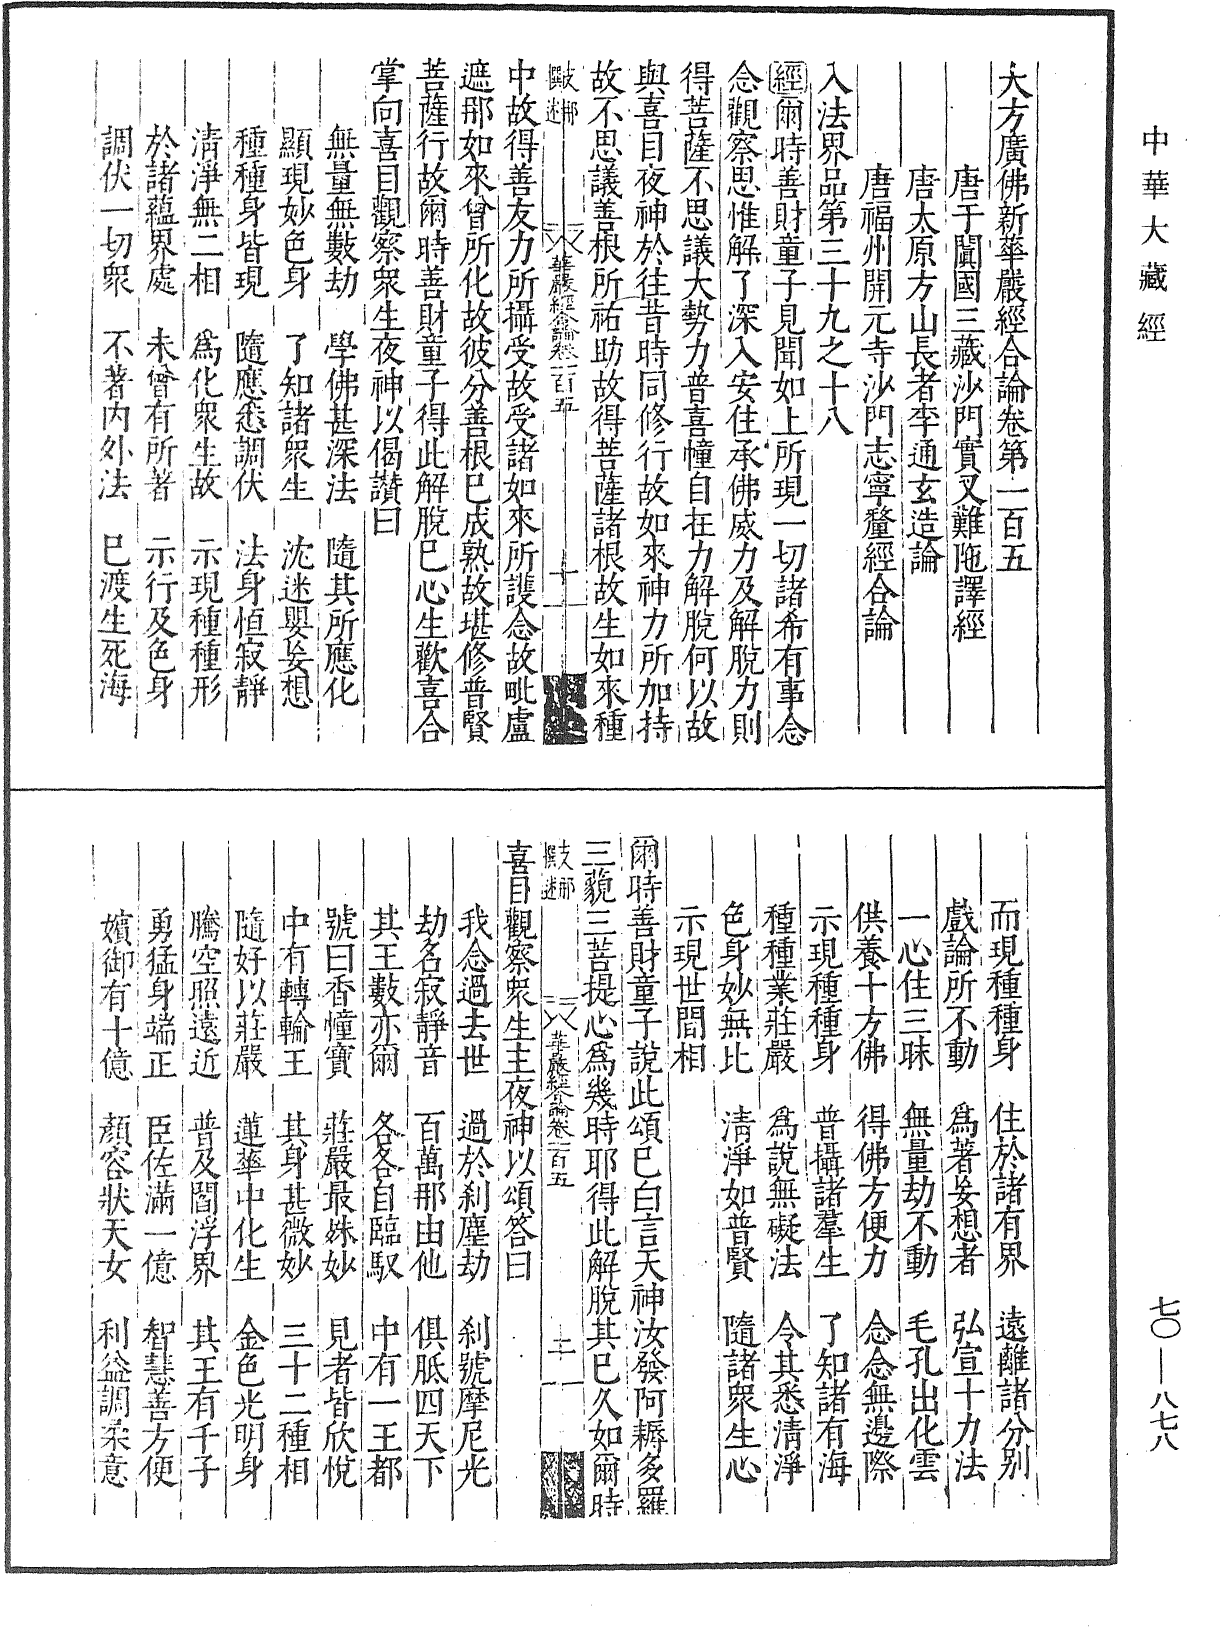 中華大藏經
大方廣佛新華嚴經合論卷第一百五
唐于闐國三藏沙門實叉難陁譯經
唐太原方山長者李通玄造論
唐福州開元寺沙門志寧釐經合論
入法界品第三十九之十八
經爾時善財童子見聞如上所現一切諸希有事念
念觀察思惟解了深入安住承佛威力及解脫力則
得菩薩不思議大勢力普喜幢自在力解脫何以故
與喜目夜神於往昔時同修行故如來神力所加持
故不思議善根所祐助故得菩薩諸根故生如來種
支那撰述 華嚴經合論卷一百五 十一
中故得善友力所攝受故受諸如來所護念故毗盧
遮那如來曾所化故彼分善根已成熟故堪修普賢
菩薩行故爾時善財童子得此解脫已心生歡喜合
掌向喜目觀察衆生夜神以偈讚曰
無量無數劫 學佛甚深法 隨其所應化
顯現妙色身 了知諸衆生 沈迷嬰妄想
種種身皆現 隨應悉調伏 法身恒寂靜
清淨無二相 爲化衆生故 示現種種形
於諸蘊界處 未曾有所著 示行及色身
調伏一切衆 不著內外法 已渡生死海
而現種種身 住於諸有界 遠離諸分別
戲論所不動 爲著妄想者 弘宣十力法
一心住三昧 無量劫不動 毛孔出化雲
供養十方佛 得佛方便力 念念無邊際
示現種種身 普攝諸羣生 了知諸有海
種種業莊嚴 爲說無礙法 令其悉清淨
色身妙無比 清淨如普賢 隨諸衆生心
示現世間相
爾時善財童子說此頌已白言天神汝發阿耨多羅
三藐三菩提心爲幾時耶得此解脫其已久如爾時
支那撰述 華嚴經合論卷一百五 二十一
喜目觀察衆生主夜神以頌答曰
我念過去世 過於刹塵劫 刹號摩尼光
劫名寂靜音 百萬那由他 俱胝四天下
其王數亦爾 各各自臨馭 中有一王都
號曰香幢寶 莊嚴最姝妙 見者皆欣悅
中有轉輪王 其身甚微妙 三十二種相
隨好以莊嚴 蓮華中化生 金色光明身
騰空照遠近 普及閻浮界 其王有千子
勇猛身端正 臣佐滿一億 智慧善方便
嬪御有十億 顏容狀天女 利益調柔意
七〇—八七八